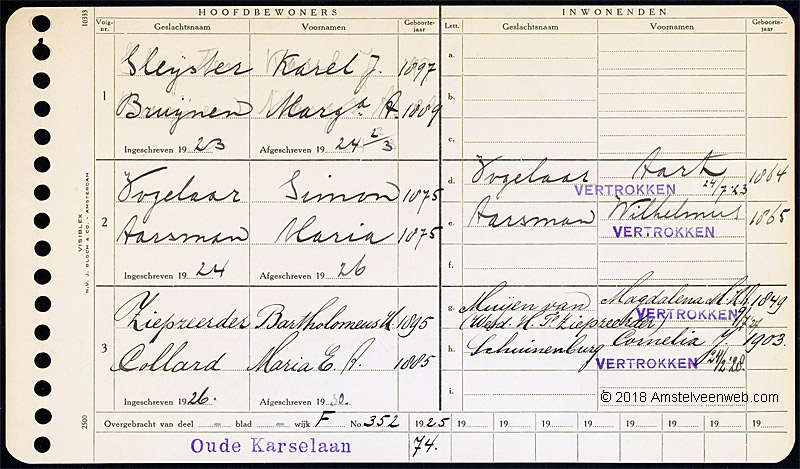 HOOFDBEWONERS
INWONENDEN
10333
Volg-nr. Geslachtsnaam Voornamen Geboorte-jaar
Lett. Geslachtsnaam Voornamen Geboorte-jaar
1
Sleijster Karel J. 1897
Bruijnen Marg.a A. 1889
Ingeschreven 1923 Afgeschreven 1924 2/3
a.
b.
c.
2
Vogelaar Simon 1875
Aarsman Maria 1875
Ingeschreven 1924 Afgeschreven 1926
d. Vogelaar Aart 1864
VERTROKKEN 24/7'23
e. Aarsman Wilhelmus 1865
VERTROKKEN
f.
3
Ziepzeerder Bartholomeus H. 1895
Collard Maria E. A. 1885
Ingeschreven 1926. Afgeschreven 1930.
g. Muijen van Magdalena M. 1849
VERTROKKEN
h. Schuinenburg Cornelia J. 1903.
VERTROKKEN
i.
© 2018 Amstelveenweb.com
VISIBLEX
N.V. J. BLOCH & CO. - AMSTERDAM
2500
Overgebracht van deel - blad - wijk F No. 352 1925 19 19 19 19 19 19 19
Oude Karselaan 74.